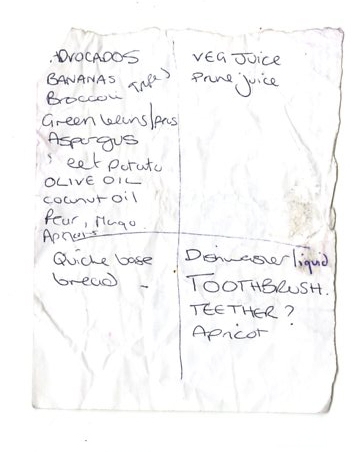 ADVOCADOS
BANANAS
Broccoli
Green beans/peas
Aspergus
eet potato
OLIVE OIL
coconut oil
Pear, Mago
Apricots
Quiche base
bread
VEG JUICE
Prune juice
Dishwasher liquid
TOOTHBRUSH.
TEETHER?
Apricot